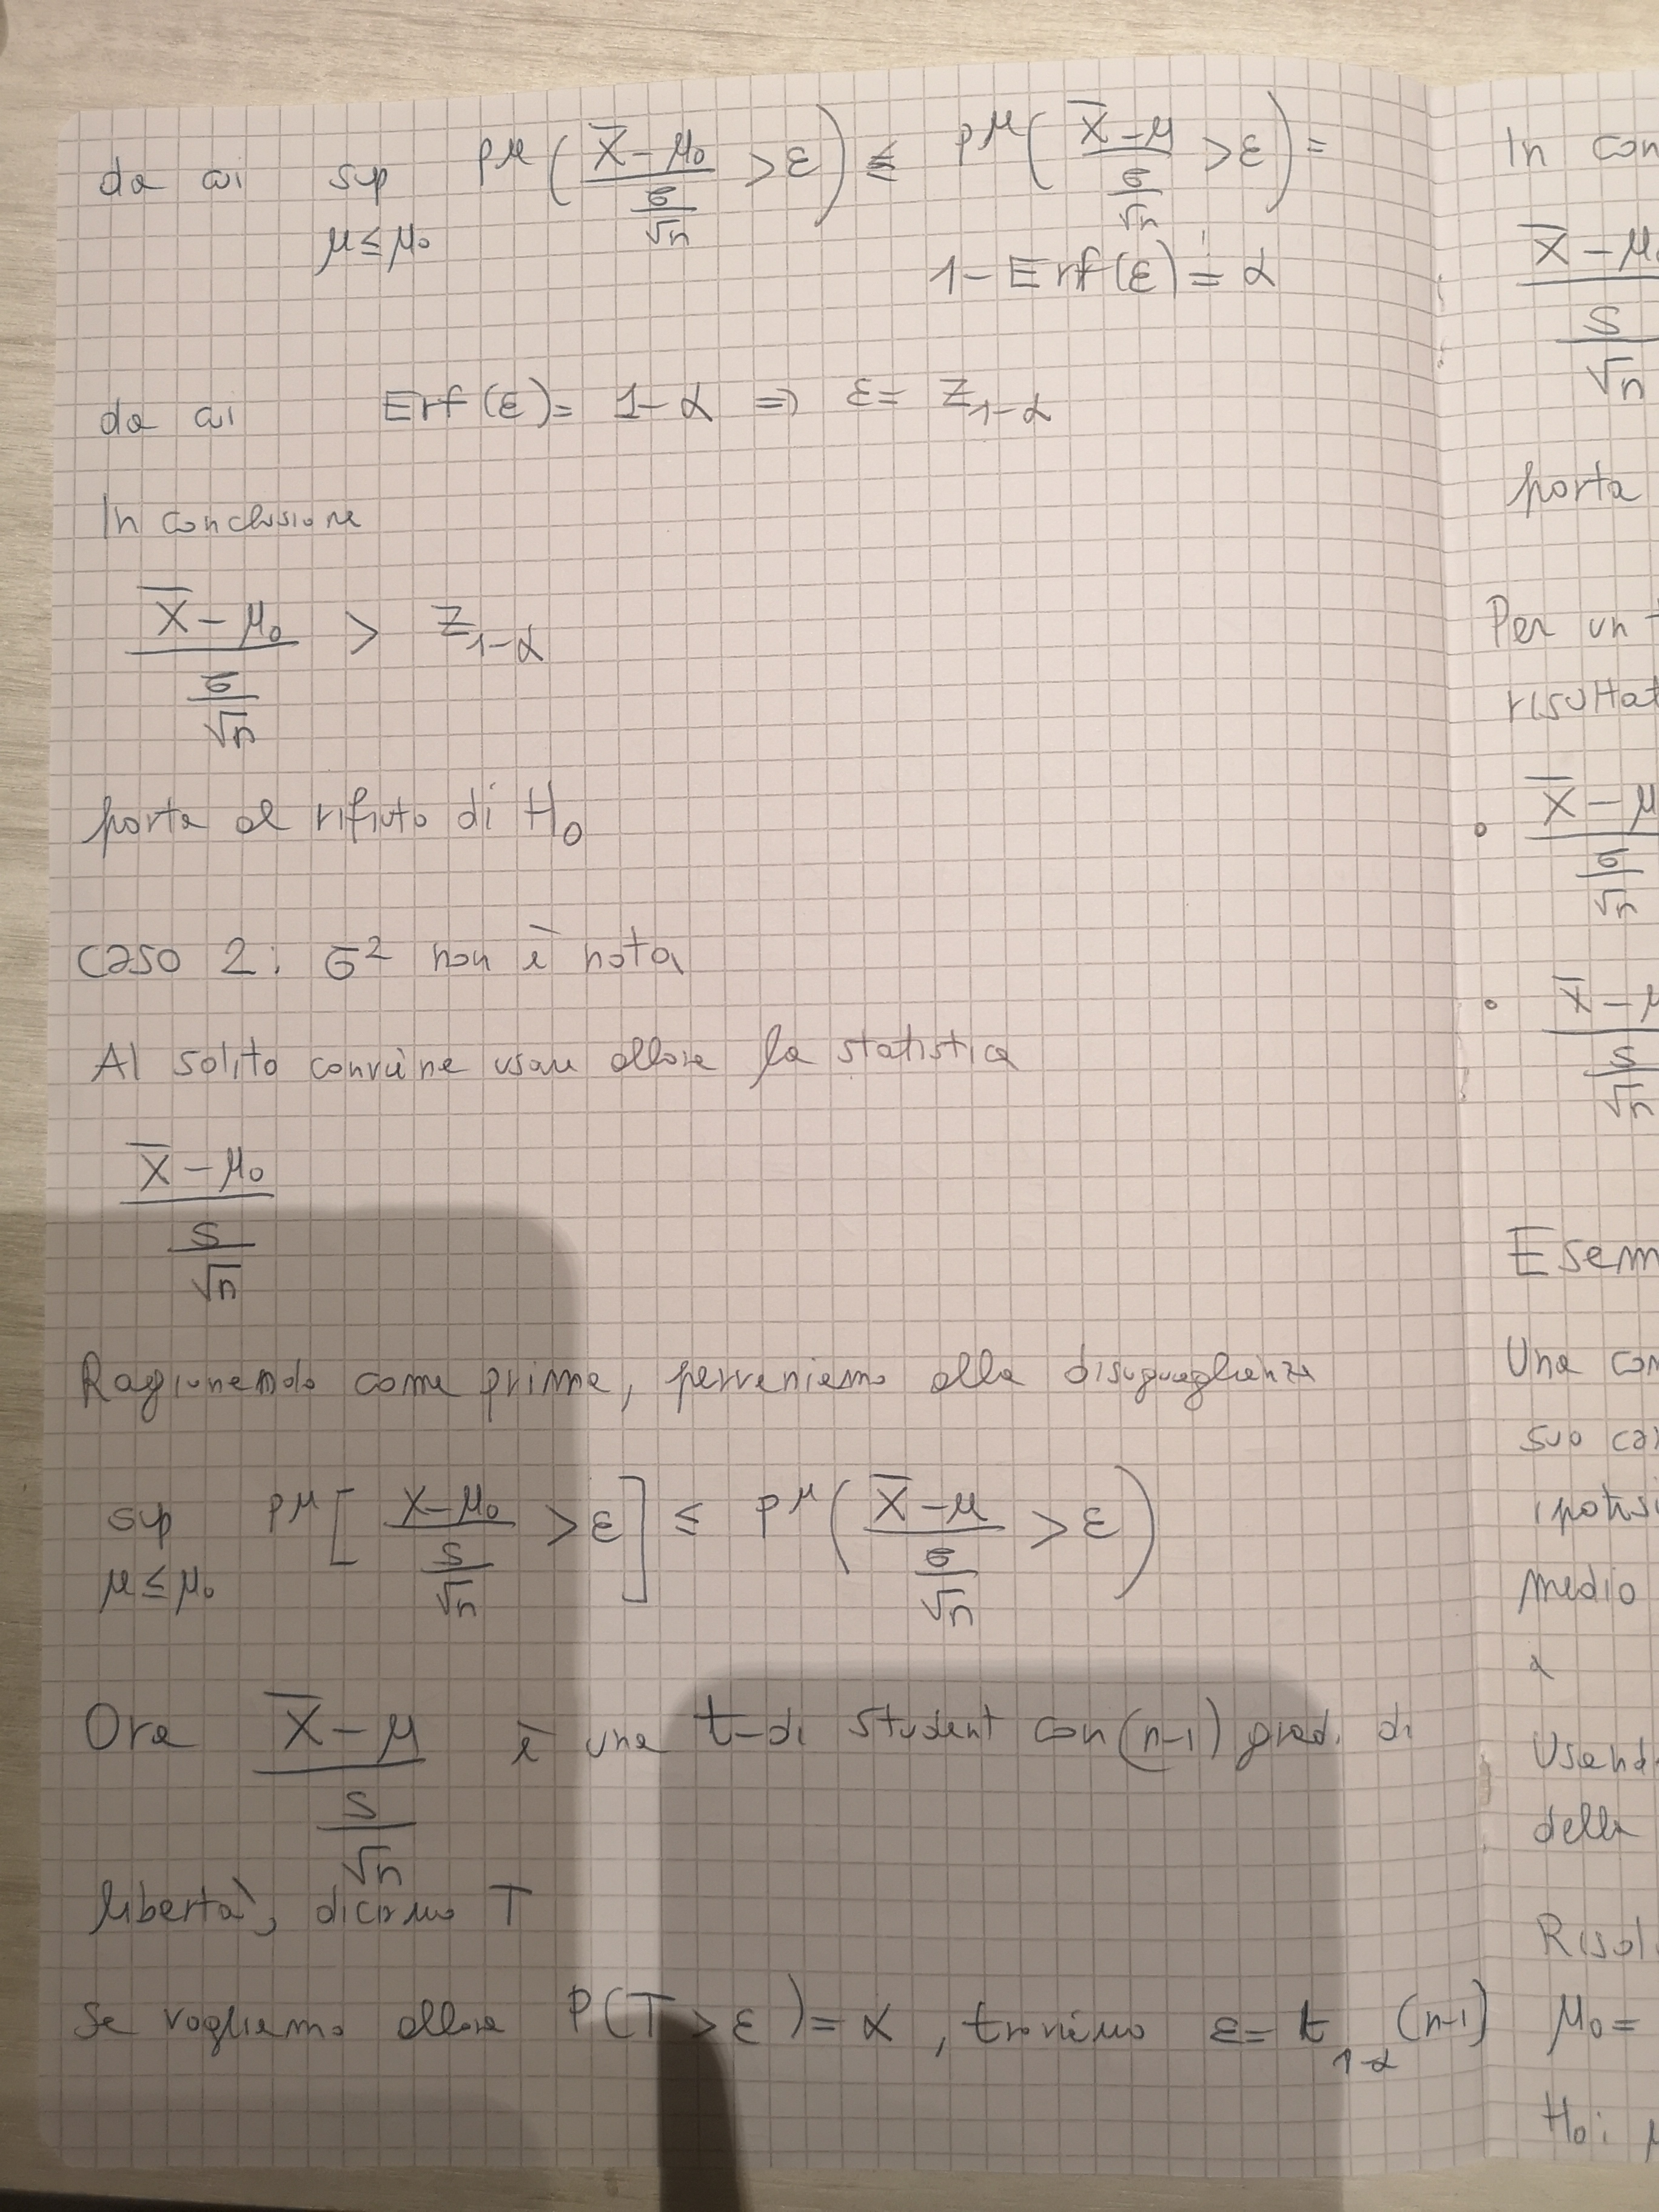 da cui sup_{μ≤μ₀} P^μ( (X̄-μ₀)/(σ/√n) > ε ) ≤ P^μ( (X̄-μ)/(σ/√n) > ε ) =
1-Erf(ε) = α
da cui Erf(ε) = 1-α ⇒ ε = z_{1-α}
In conclusione
(X̄-μ₀)/(σ/√n) > z_{1-α}
porta al rifiuto di H₀
caso 2: σ² non è nota
Al solito conviene usare allora la statistica
(X̄-μ₀)/(S/√n)
Ragionando come prima, perveniamo alla disuguaglianza
sup_{μ≤μ₀} P^μ[ (X-μ₀)/(S/√n) > ε ] ≤ P^μ( (X̄-μ)/(σ/√n) > ε )
Ora (X̄-μ)/(S/√n) è una t-di Student con (n-1) grad. di
libertà, diciamo T
Se vogliamo allora P(T > ε) = α, troviamo ε = t_{1-α}(n-1)
In con
X̄-μ₀
S/√n
porta
Per un
risultat
• X̄-μ
σ/√n
• X̄-μ
S/√n
Esem
Una com
suo ca
ipotesi
medio
α
Usand
della
Risol
μ₀=
H₀: μ